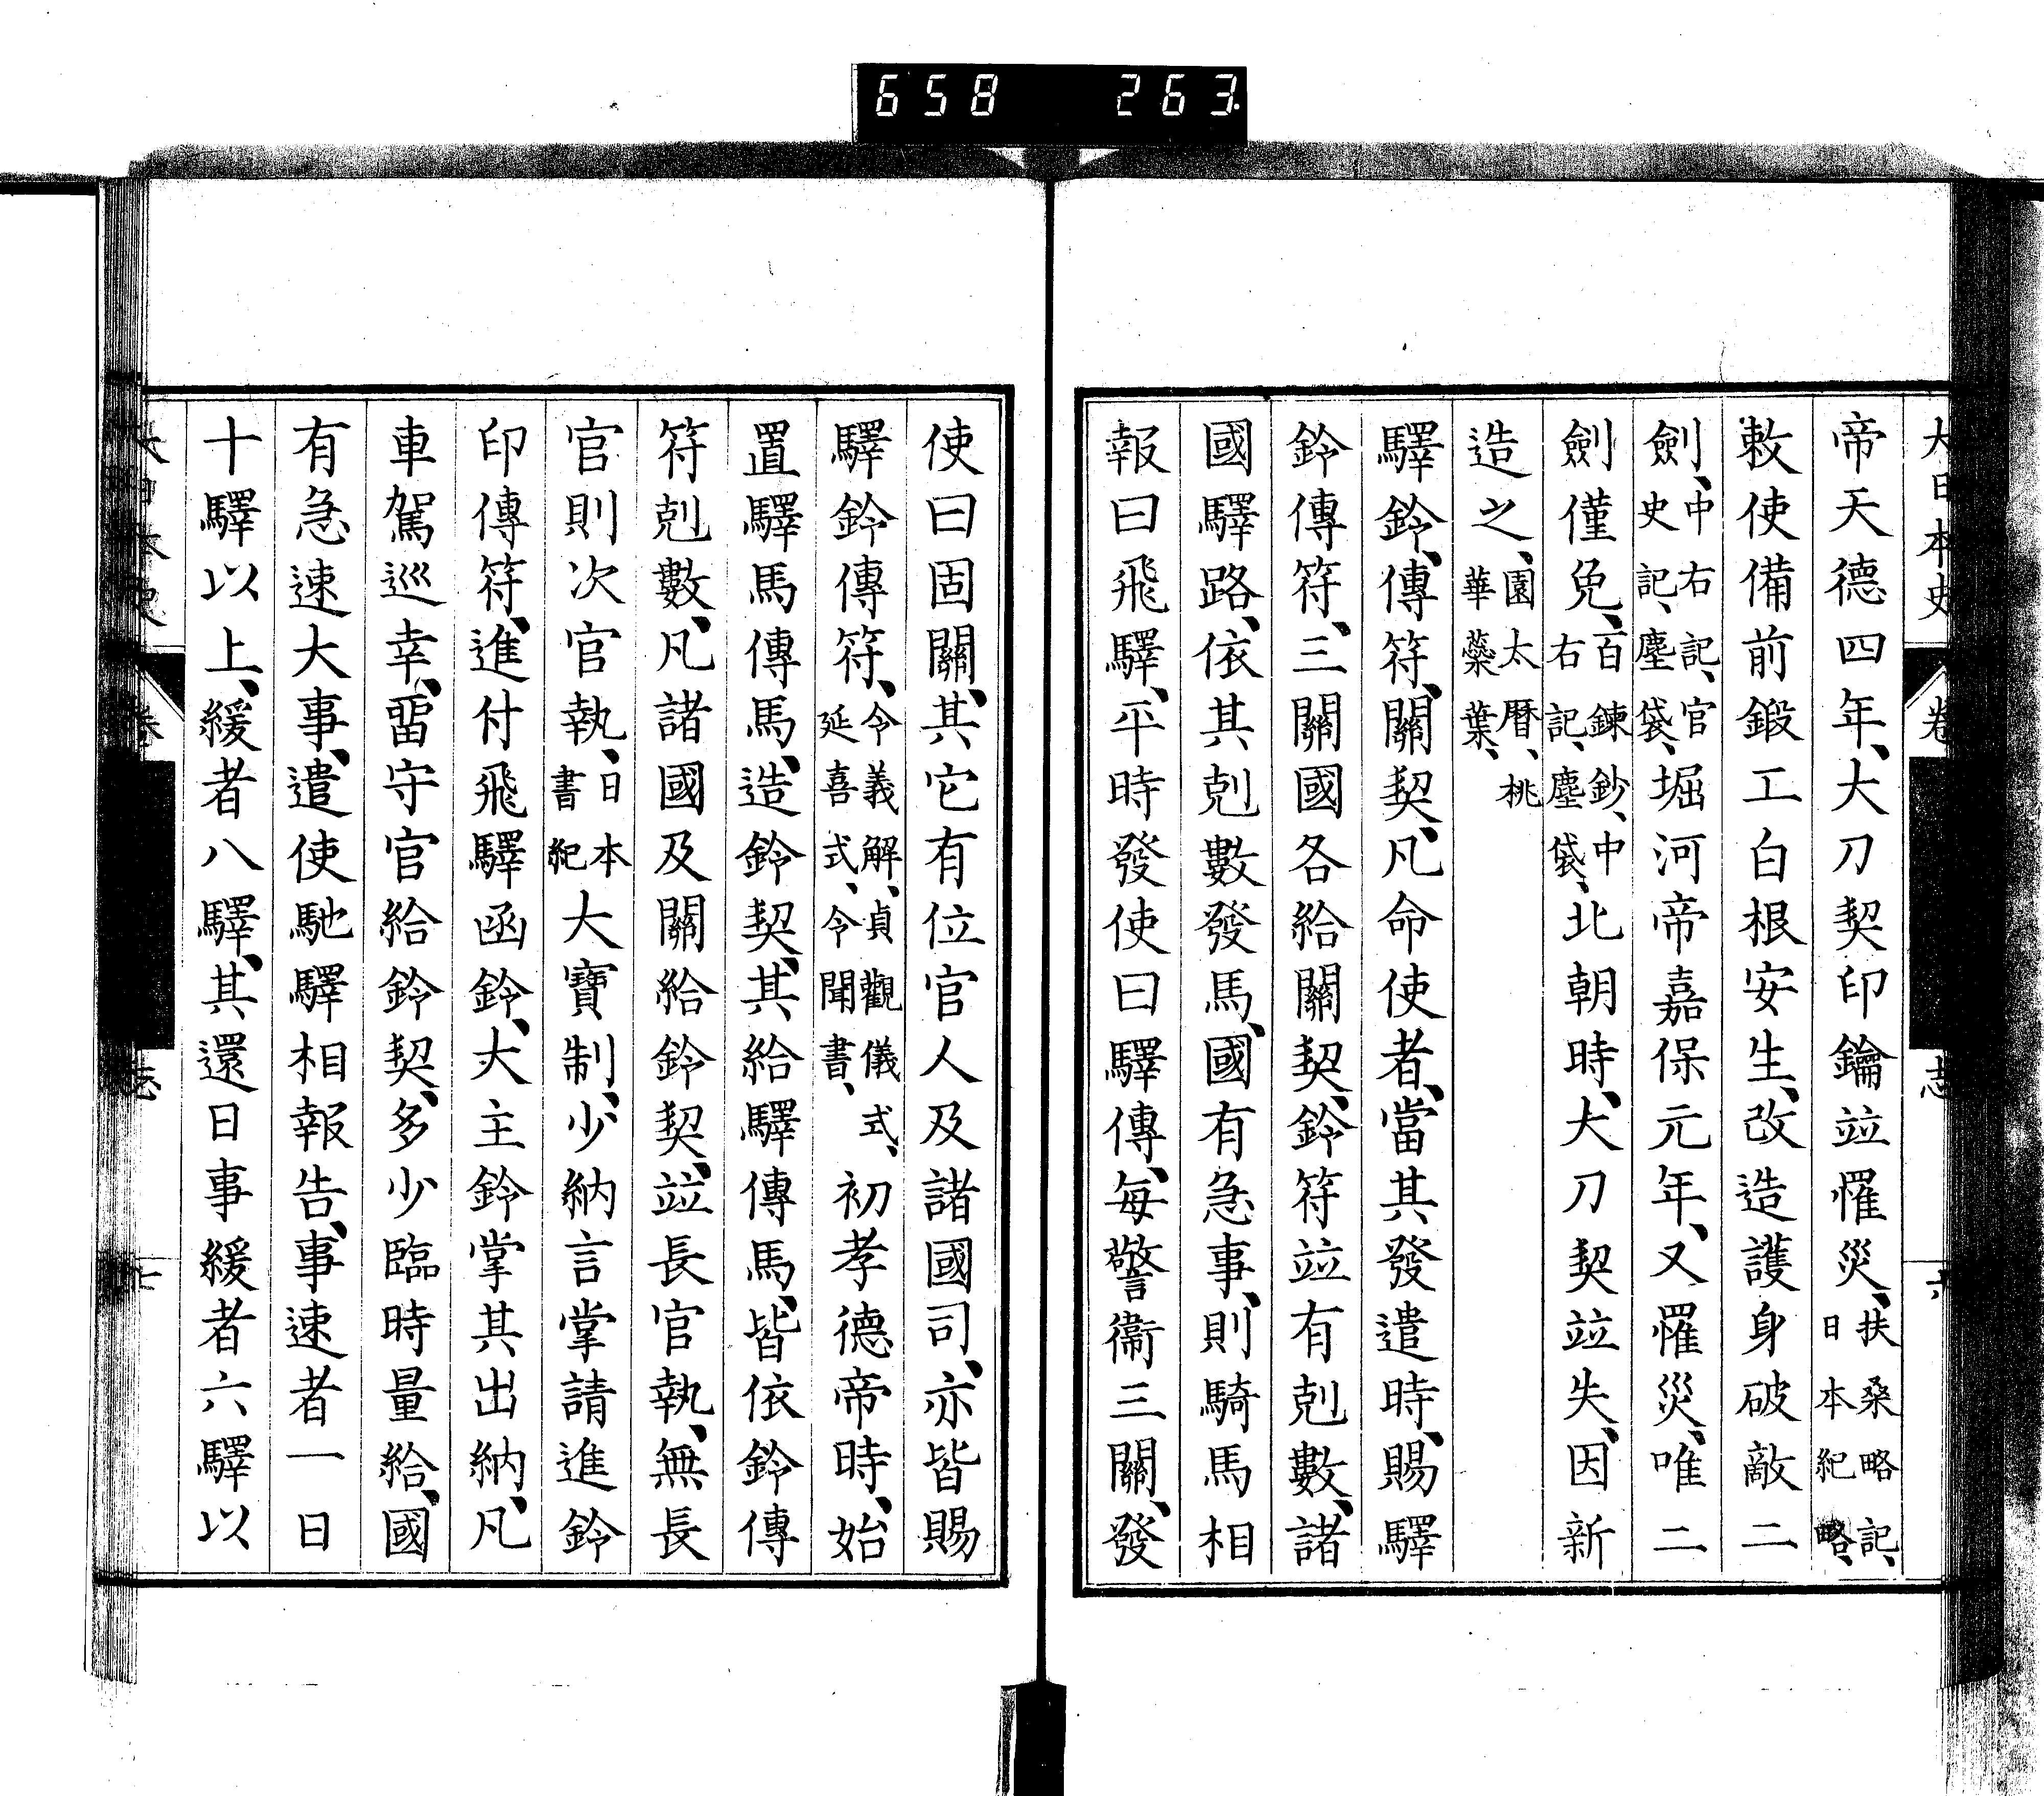 658 263.
大日本史 卷 志 六
帝天德四年、大刀契印鑰竝罹災、扶桑略記、日本紀略、
敕使備前鍛工白根安生、改造護身破敵二
劍、中右記、官史記、塵袋、堀河帝嘉保元年、又罹災、唯二
劍僅免、百鍊鈔、中右記、塵袋、北朝時、大刀契竝失、因新
造之、園太曆、桃華蘂葉、
驛鈴、傳符、關契、凡命使者、當其發遣時、賜驛
鈴傳符、三關國各給關契、鈴符竝有剋數、諸
國驛路、依其剋數發馬、國有急事、則騎馬相
報曰飛驛、平時發使曰驛傳、每警衞三關、發
使曰固關、其它有位官人及諸國司、亦皆賜
驛鈴傳符、令義解、貞觀儀式、延喜式、令聞書、初孝德帝時、始
置驛馬傳馬、造鈴契、其給驛傳馬、皆依鈴傳
符剋數、凡諸國及關給鈴契、竝長官執、無長
官則次官執、日本書紀大寶制、少納言掌請進鈴
印傳符、進付飛驛函鈴、大主鈴掌其出納、凡
車駕巡幸、畱守官給鈴契、多少臨時量給、國
有急速大事、遣使馳驛相報告、事速者一日
十驛以上、緩者八驛、其還日事緩者六驛以